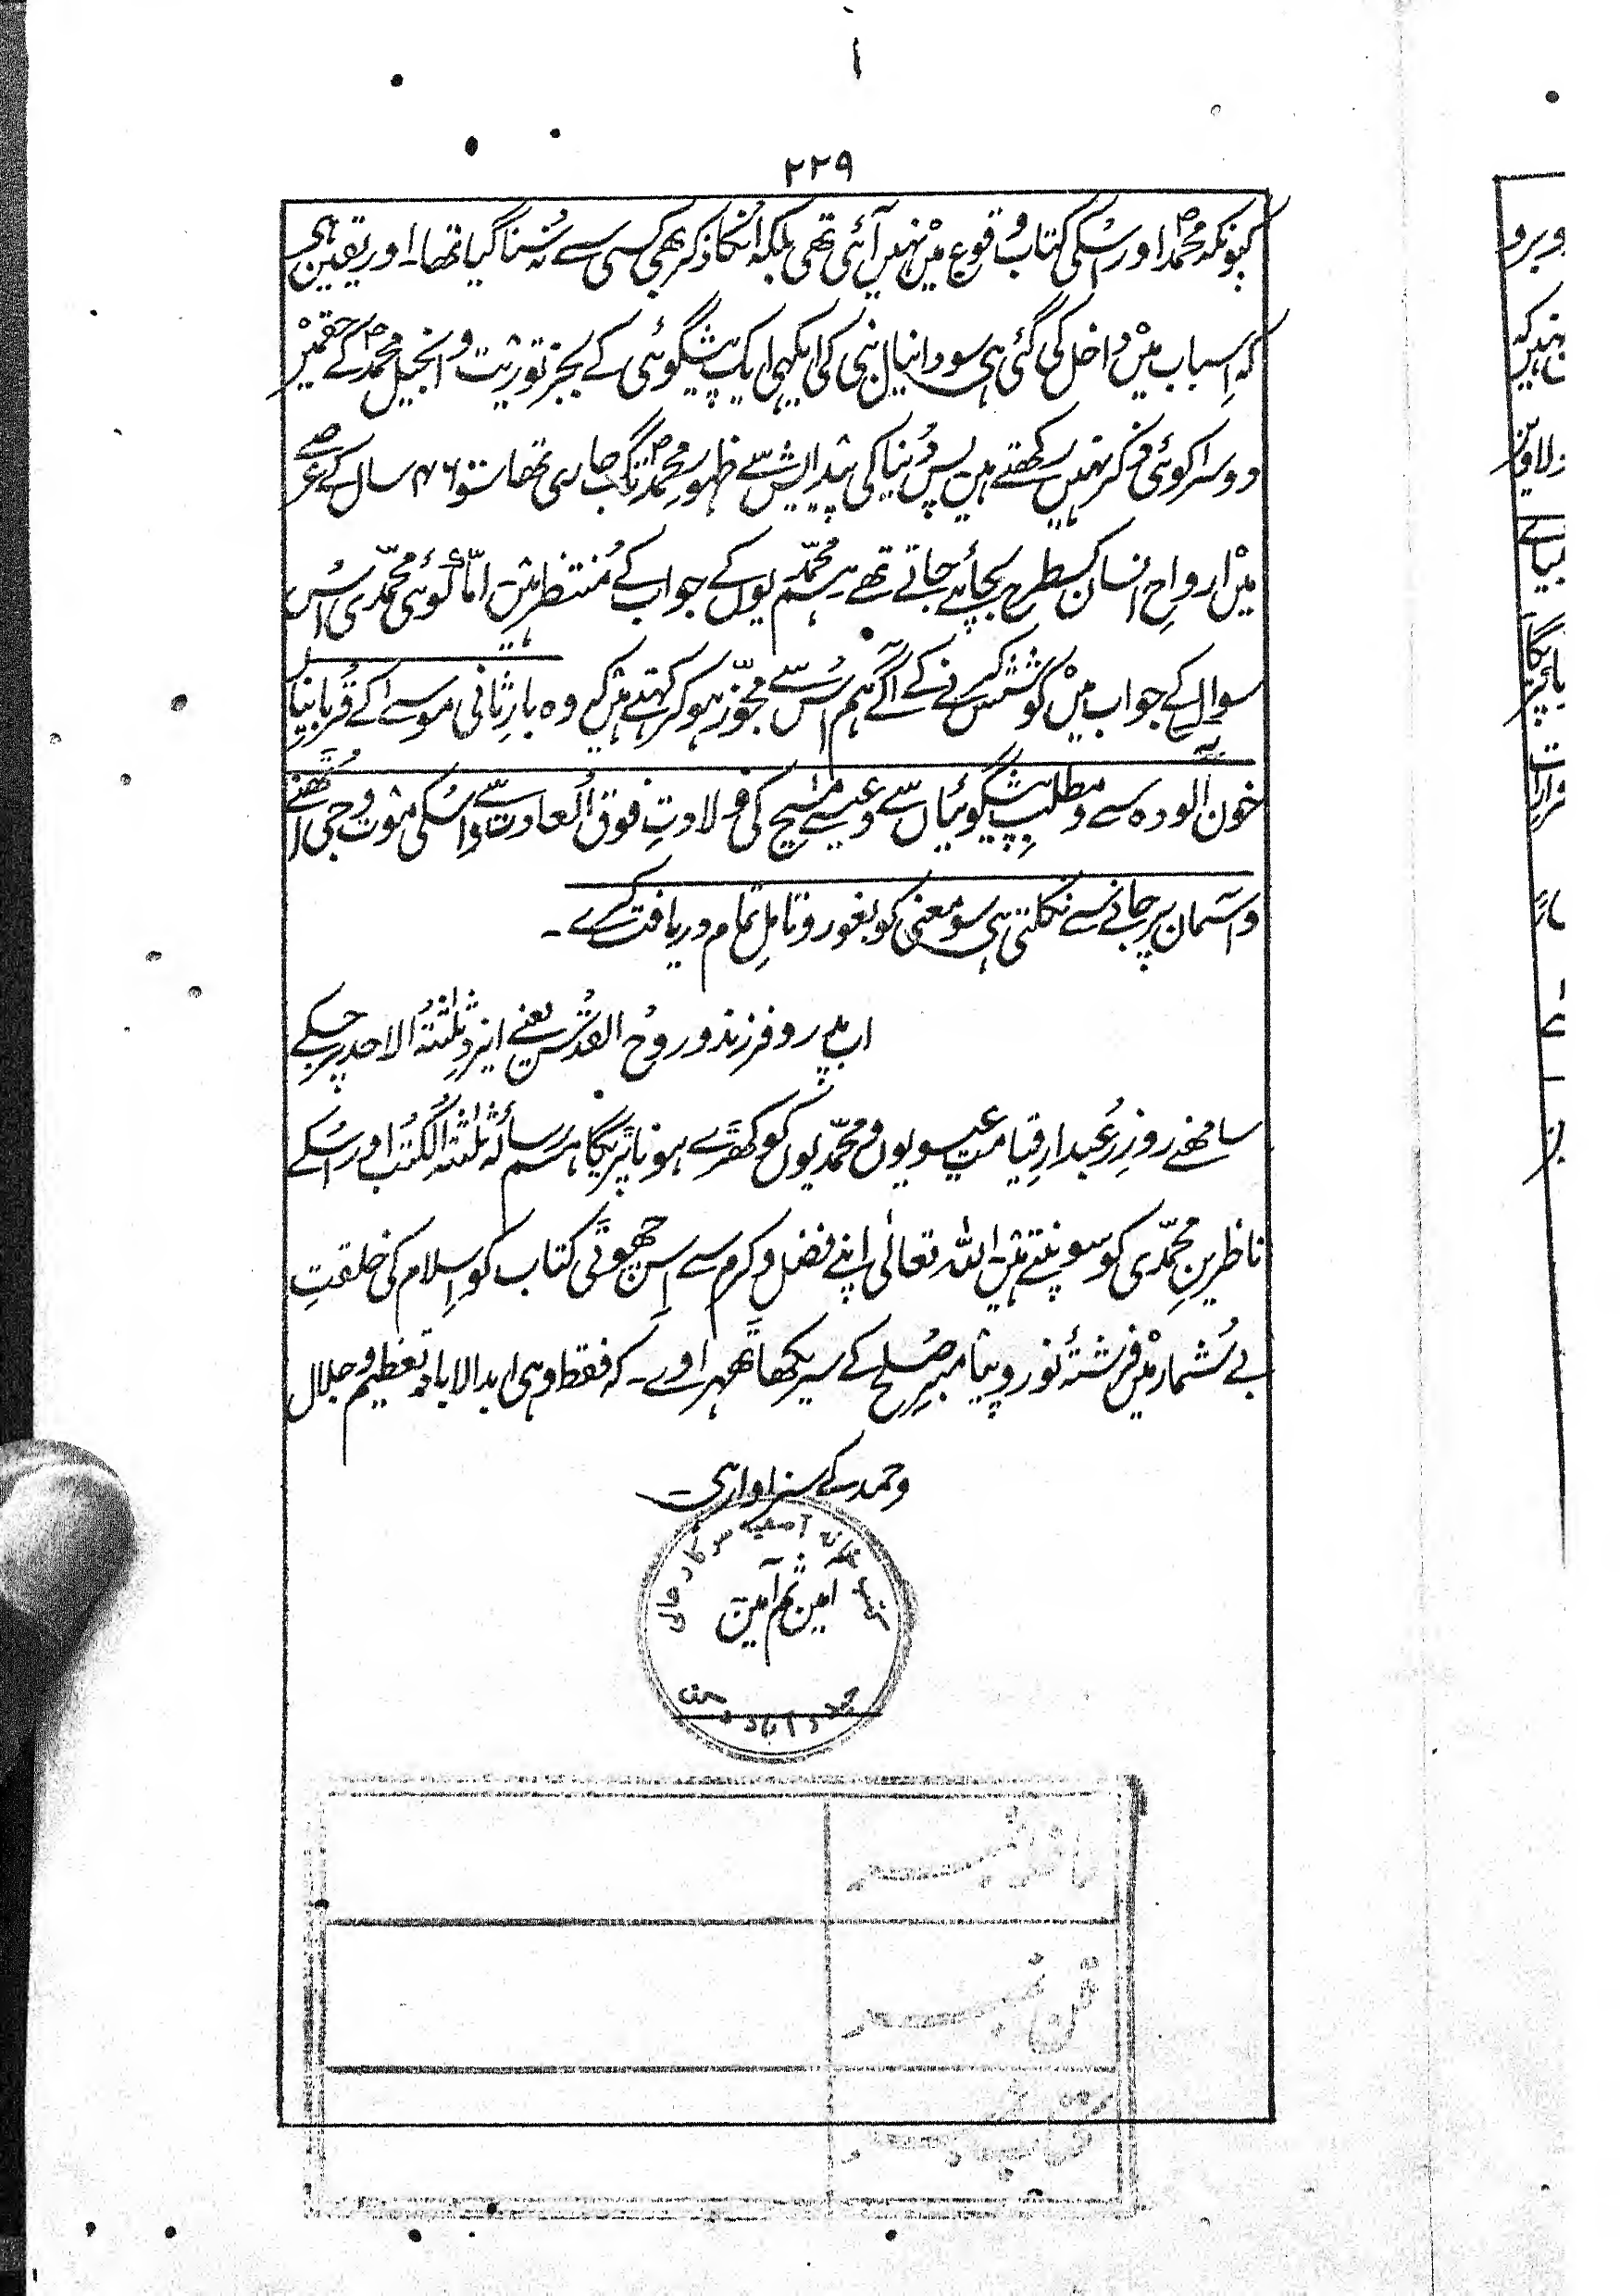 ۲۲۹
کیونکہ محمدؐ اور اُسکی کتاب وقوع میں نہیں آئی تھی بلکہ اُنکا ذکر بھی کسی سے نہ سُنا گیا تھا۔ اور یقین ہی
کہ اِسباب میں داخل کی گئی ہی سو دانیال نبی کی ایکہی ایک پیشگوئی کے بجز توریت و انجیل محمدؐ کے حقمیں
دوسرا کوئی ذکر نہیں رکھتے ہیں پس دُنیا کی پیدایش سے ظہورِ محمدؐ تک جاری تھا سو ۴۶ سال کے عرصے
میں ارواحِ انسان کسطرح بچائے جاتے تھے ہم محمّدیوں کے جواب کے مُنتظر ہیں۔ امّا کوئی محمّدی اِس
سوال کے جواب میں کوشش کرنے کے آگے ہم اُس سے مجوّز ہو کر کہتے ہیں کہ وہ بارِ ثانی موسےٰ کے قُربانیہائے
خون آلودہ سے و مطلبِ پیشگوئیاں سے و عیسےٰ مسیح کی ولادتِ فوق العادت سے و اُسکی موت و جی اُٹھنے
و آسمان پر جانیسے نکلتی ہی سو معنی کو بغور و تامِل تمام دریافت کرے۔
اب پدر و فرزند و روحُ القُدس یعنے ایزدِ ثلٰثتہُ الاحد پر جسکے
سامھنے روزِ رُعبدارِ قیامت عیسویوں و محمّدیوں کو کھڑے ہونا پڑیگا ہم رسالہٴ ثلٰثتہُ الکُتب اور اُسکے
ناظرینِ محمّدی کو سونپتے ہیں۔ اللہ تعالٰی اپنے فضل و کرم سے اِس چھوٹی کتاب کو اِسلام کی خلقتِ
بے شُمار میں فرشتۂ نور و پیامبرِ صُلح کے سریکھا ٹھہراوے۔ کہ فقط وہی ابد الاباد تعظیم و جلال
و حمد کے سزاوار ہی۔
آمین ثم آمین